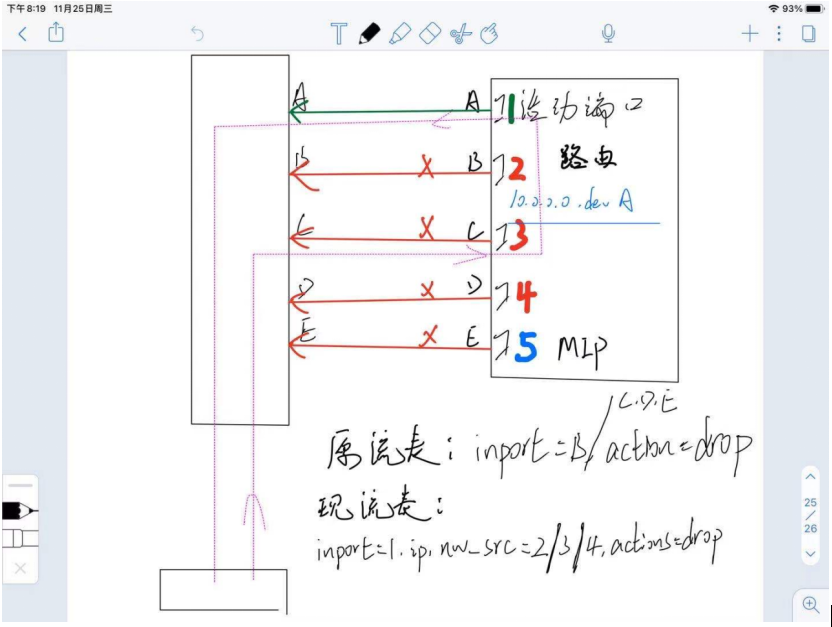 下午8:19 11月25日周三
93%
A A 1 活动端口
B X B 2 路由
10.0.0.0.dev A
C X C 3
D X D 4
E X E 5 MIP
/C.D.E
原流表: inport=B/action=drop
现流表:
inport=1.ip,nw_src=2/3/4,actions=drop
25
/
26